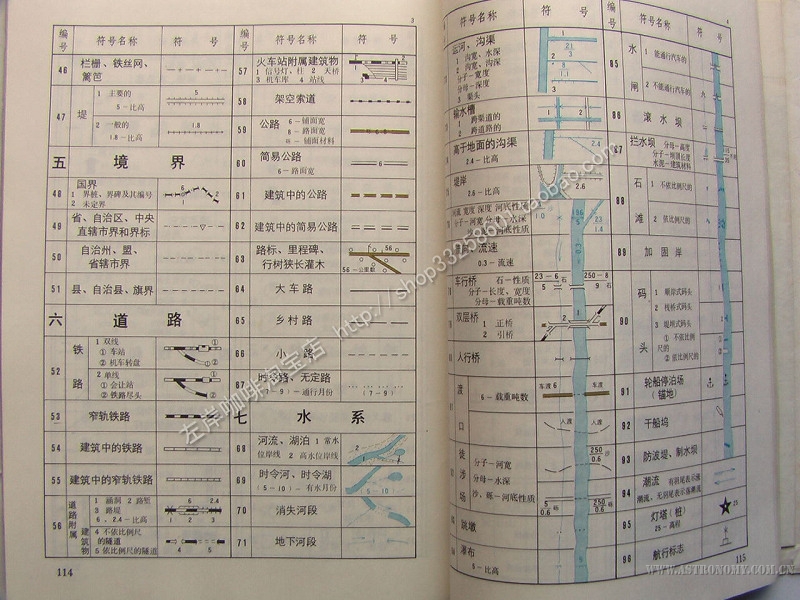 3
编号 符号名称 符 号 编号 符号名称 符 号
46 栏栅、铁丝网、篱笆
47 堤 1 主要的
5-比高
2 一般的
1.8-比高
五 境 界
48 国界
1 界桩、界碑及其编号
2 未定界
49 省、自治区、中央
直辖市界和界标
50 自治州、盟、
省辖市界
51 县、自治县、旗界
六 道 路
52 铁路 1 双线
① 车站
② 机车转盘
2 单线
① 会让站
② 铁路尽头
53 窄轨铁路
54 建筑中的铁路
55 建筑中的窄轨铁路
56 道路附属建筑物 1 涵洞 2 路堑
3 路堤
6、2.4-比高
4 不依比例尺
的隧道
5 依比例尺的隧道
57 火车站附属建筑物
1 信号灯、柱 2 天桥
3 机车库 4 站线
58 架空索道
59 公路 6-铺面宽
8-路面宽
60 简易公路
6-路面宽
61 建筑中的公路
62 建筑中的简易公路
63 路标、里程碑、
行树狭长灌木
56-公里数
64 大车路
65 乡村路
66 小 路
67 时令路、无定路
(7-9)-通行月份
七 水 系
68 河流、湖泊 1 常水
位岸线 2 高水位岸线
69 时令河、时令湖
(5-10)-有水月份
70 消失河段
71 地下河段
114
4
符号名称 符 号 编号 符号名称 符 号
运河、沟渠
1 沟宽、水深
2 沟宽、沟深
分子-宽度
分母-深度
3 渠头
输水槽
1 跨渠道的
2 跨道路的
高于地面的沟渠
2.4-比高
堤岸
2.6-比高
流速
0.3-流速
车行桥 石-性质
分子-长度、宽度
分母-载重吨数
双层桥
1 正桥
2 引桥
人行桥
渡口 6-载重吨数
徒涉场 分子-河宽
分母-水深
沙、砾-河底性质
跳墩
瀑布
5-比高
85 水闸 1 能通行汽车的
2 不能通行汽车的
86 滚水坝
87 拦水坝 分母-高度
分子-坝顶长度
水泥-建筑材料
88 石滩 1 不依比例尺的
2 依比例尺的
89 加固岸
90 码头 1 顺岸式码头
2 栈桥式码头
3 堤坝式码头
① 不依比例尺的
② 依比例尺的
91 轮船停泊场
(锚地)
92 干船坞
93 防波堤、制水坝
94 潮流 有羽尾表示涨
潮流,无羽尾表示落潮流
95 灯塔(桩)
25-高程
96 航行标志
115
左岸咖啡淘宝店 http://shop33258630.taobao.com
WWW.ASTRONOMY.COM.CN